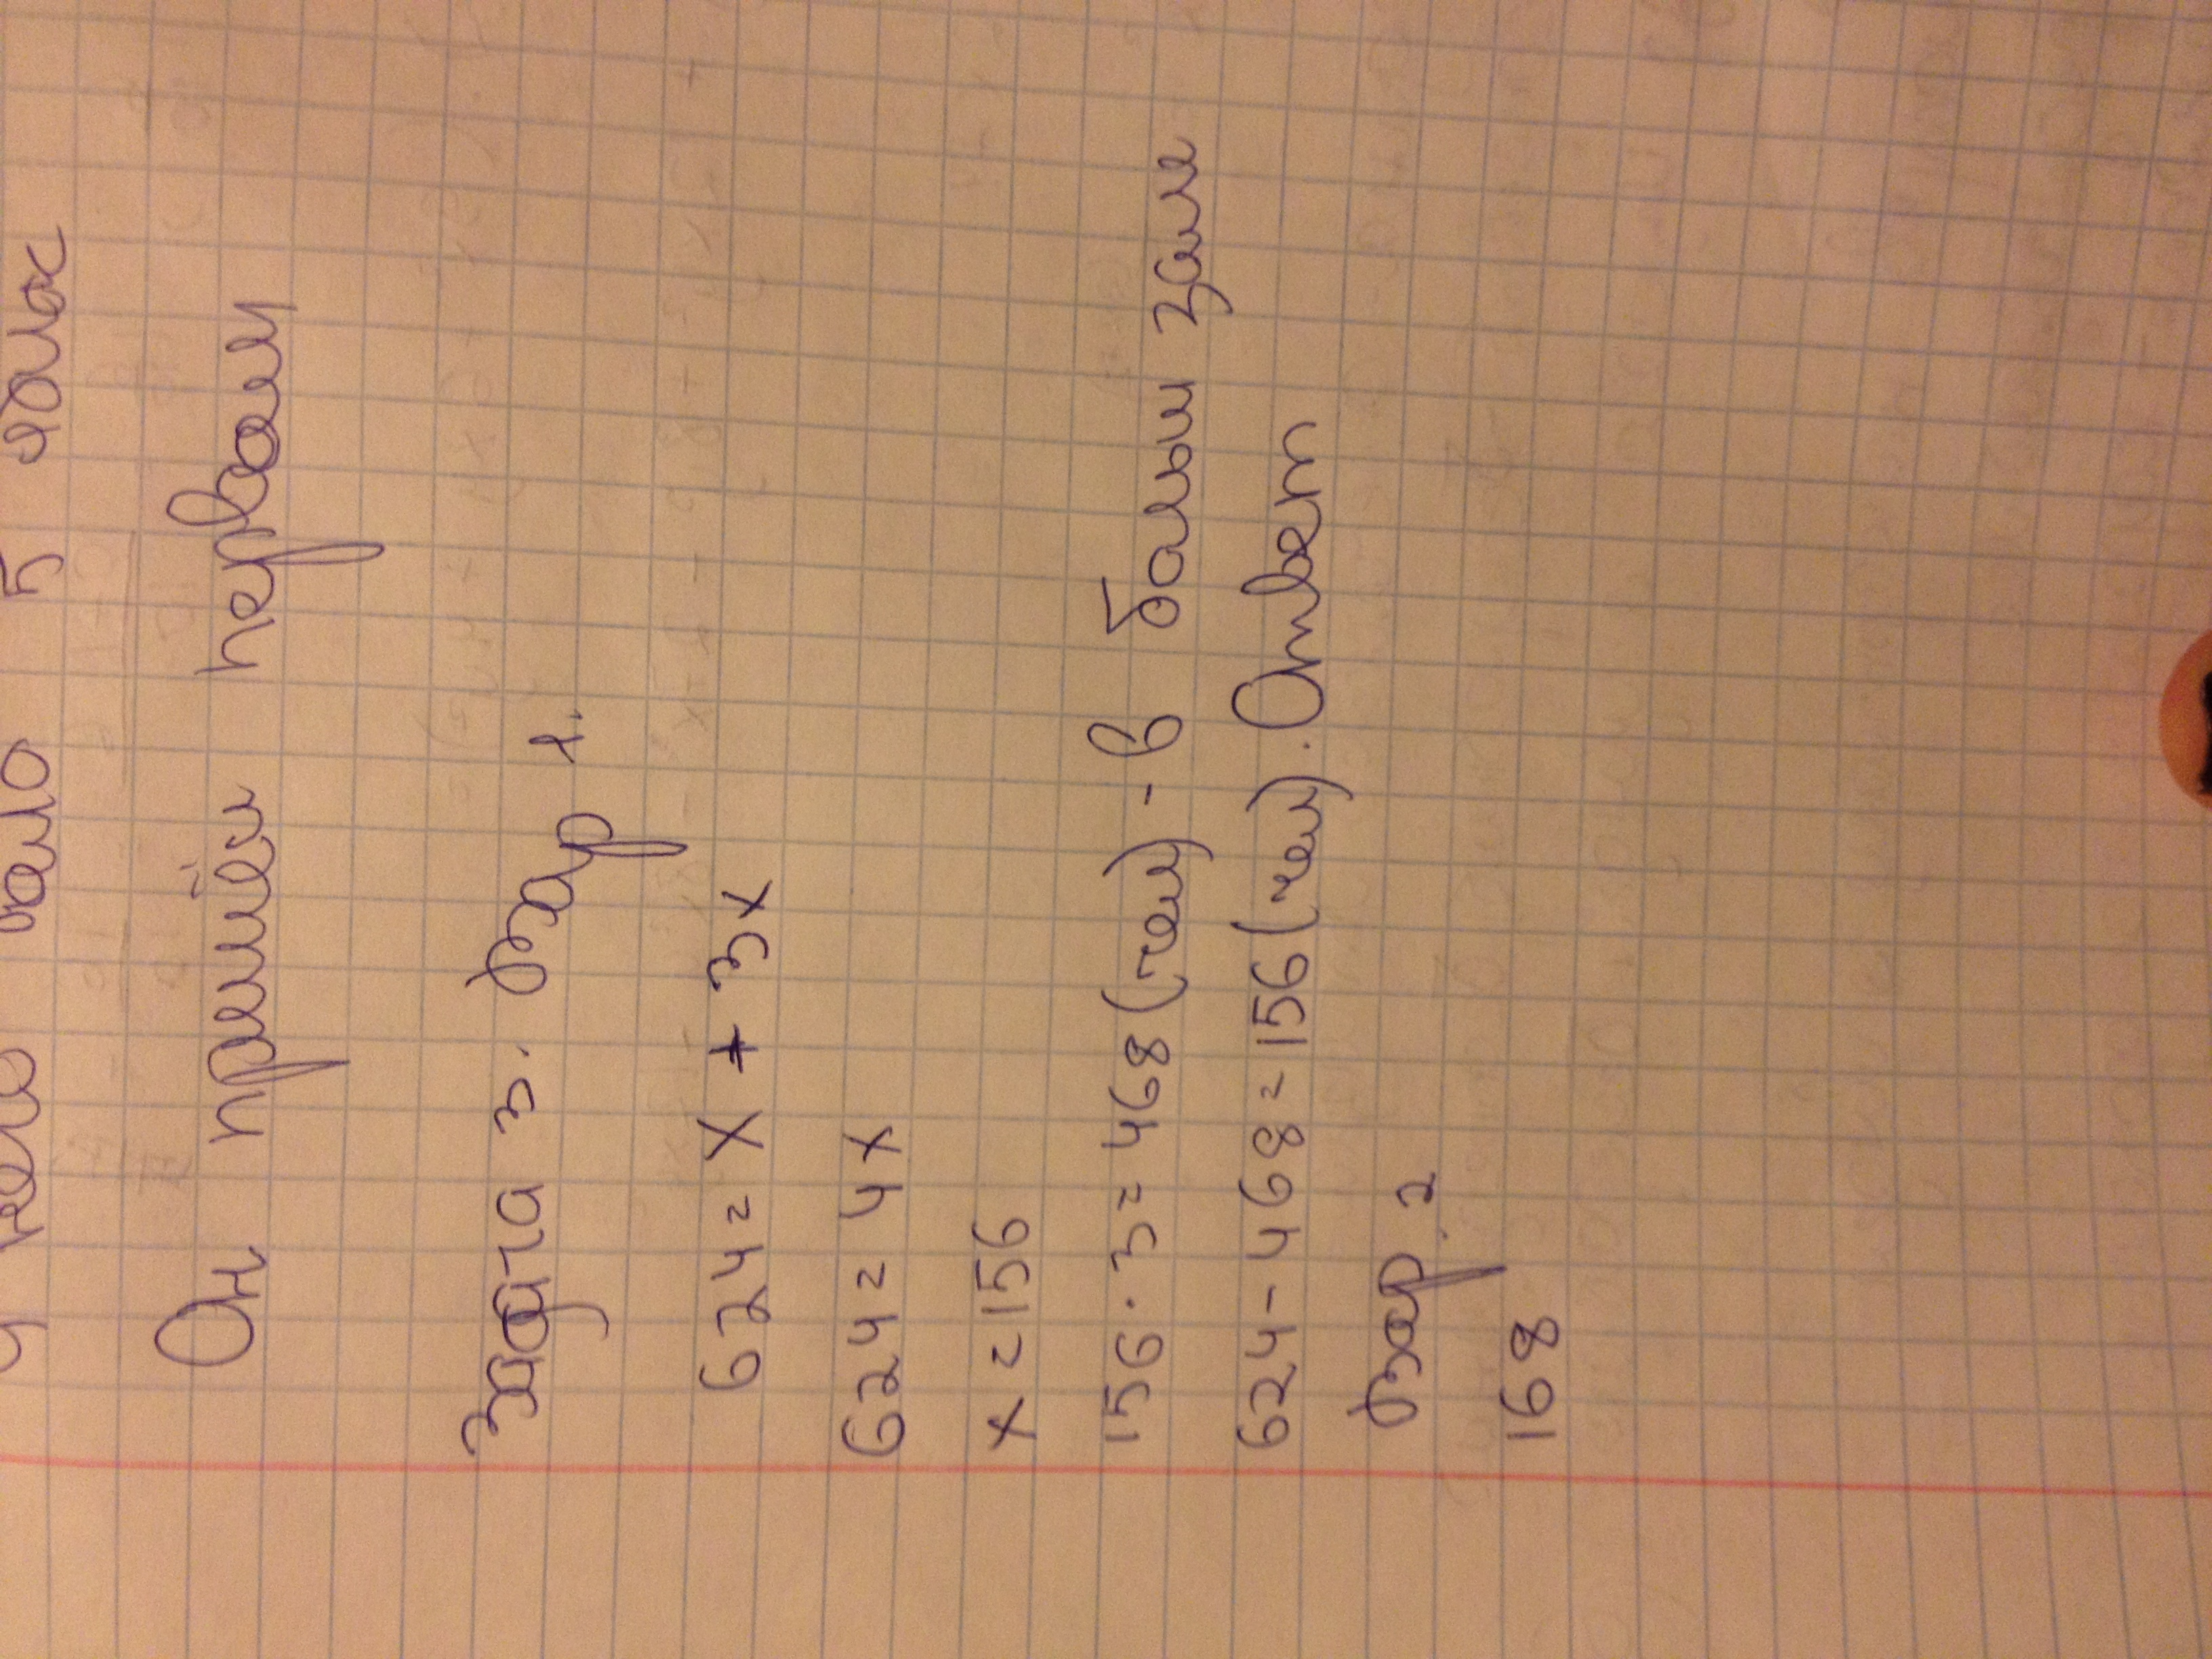 5 часах
Он пришёл первым
Задача 3. Вар 1.
624 = X + 3x
624 = 4X
x = 156
156 · 3 = 468 (чел) - в больш зале
624 - 468 = 156 (чел). Ответ
Вар. 2
168